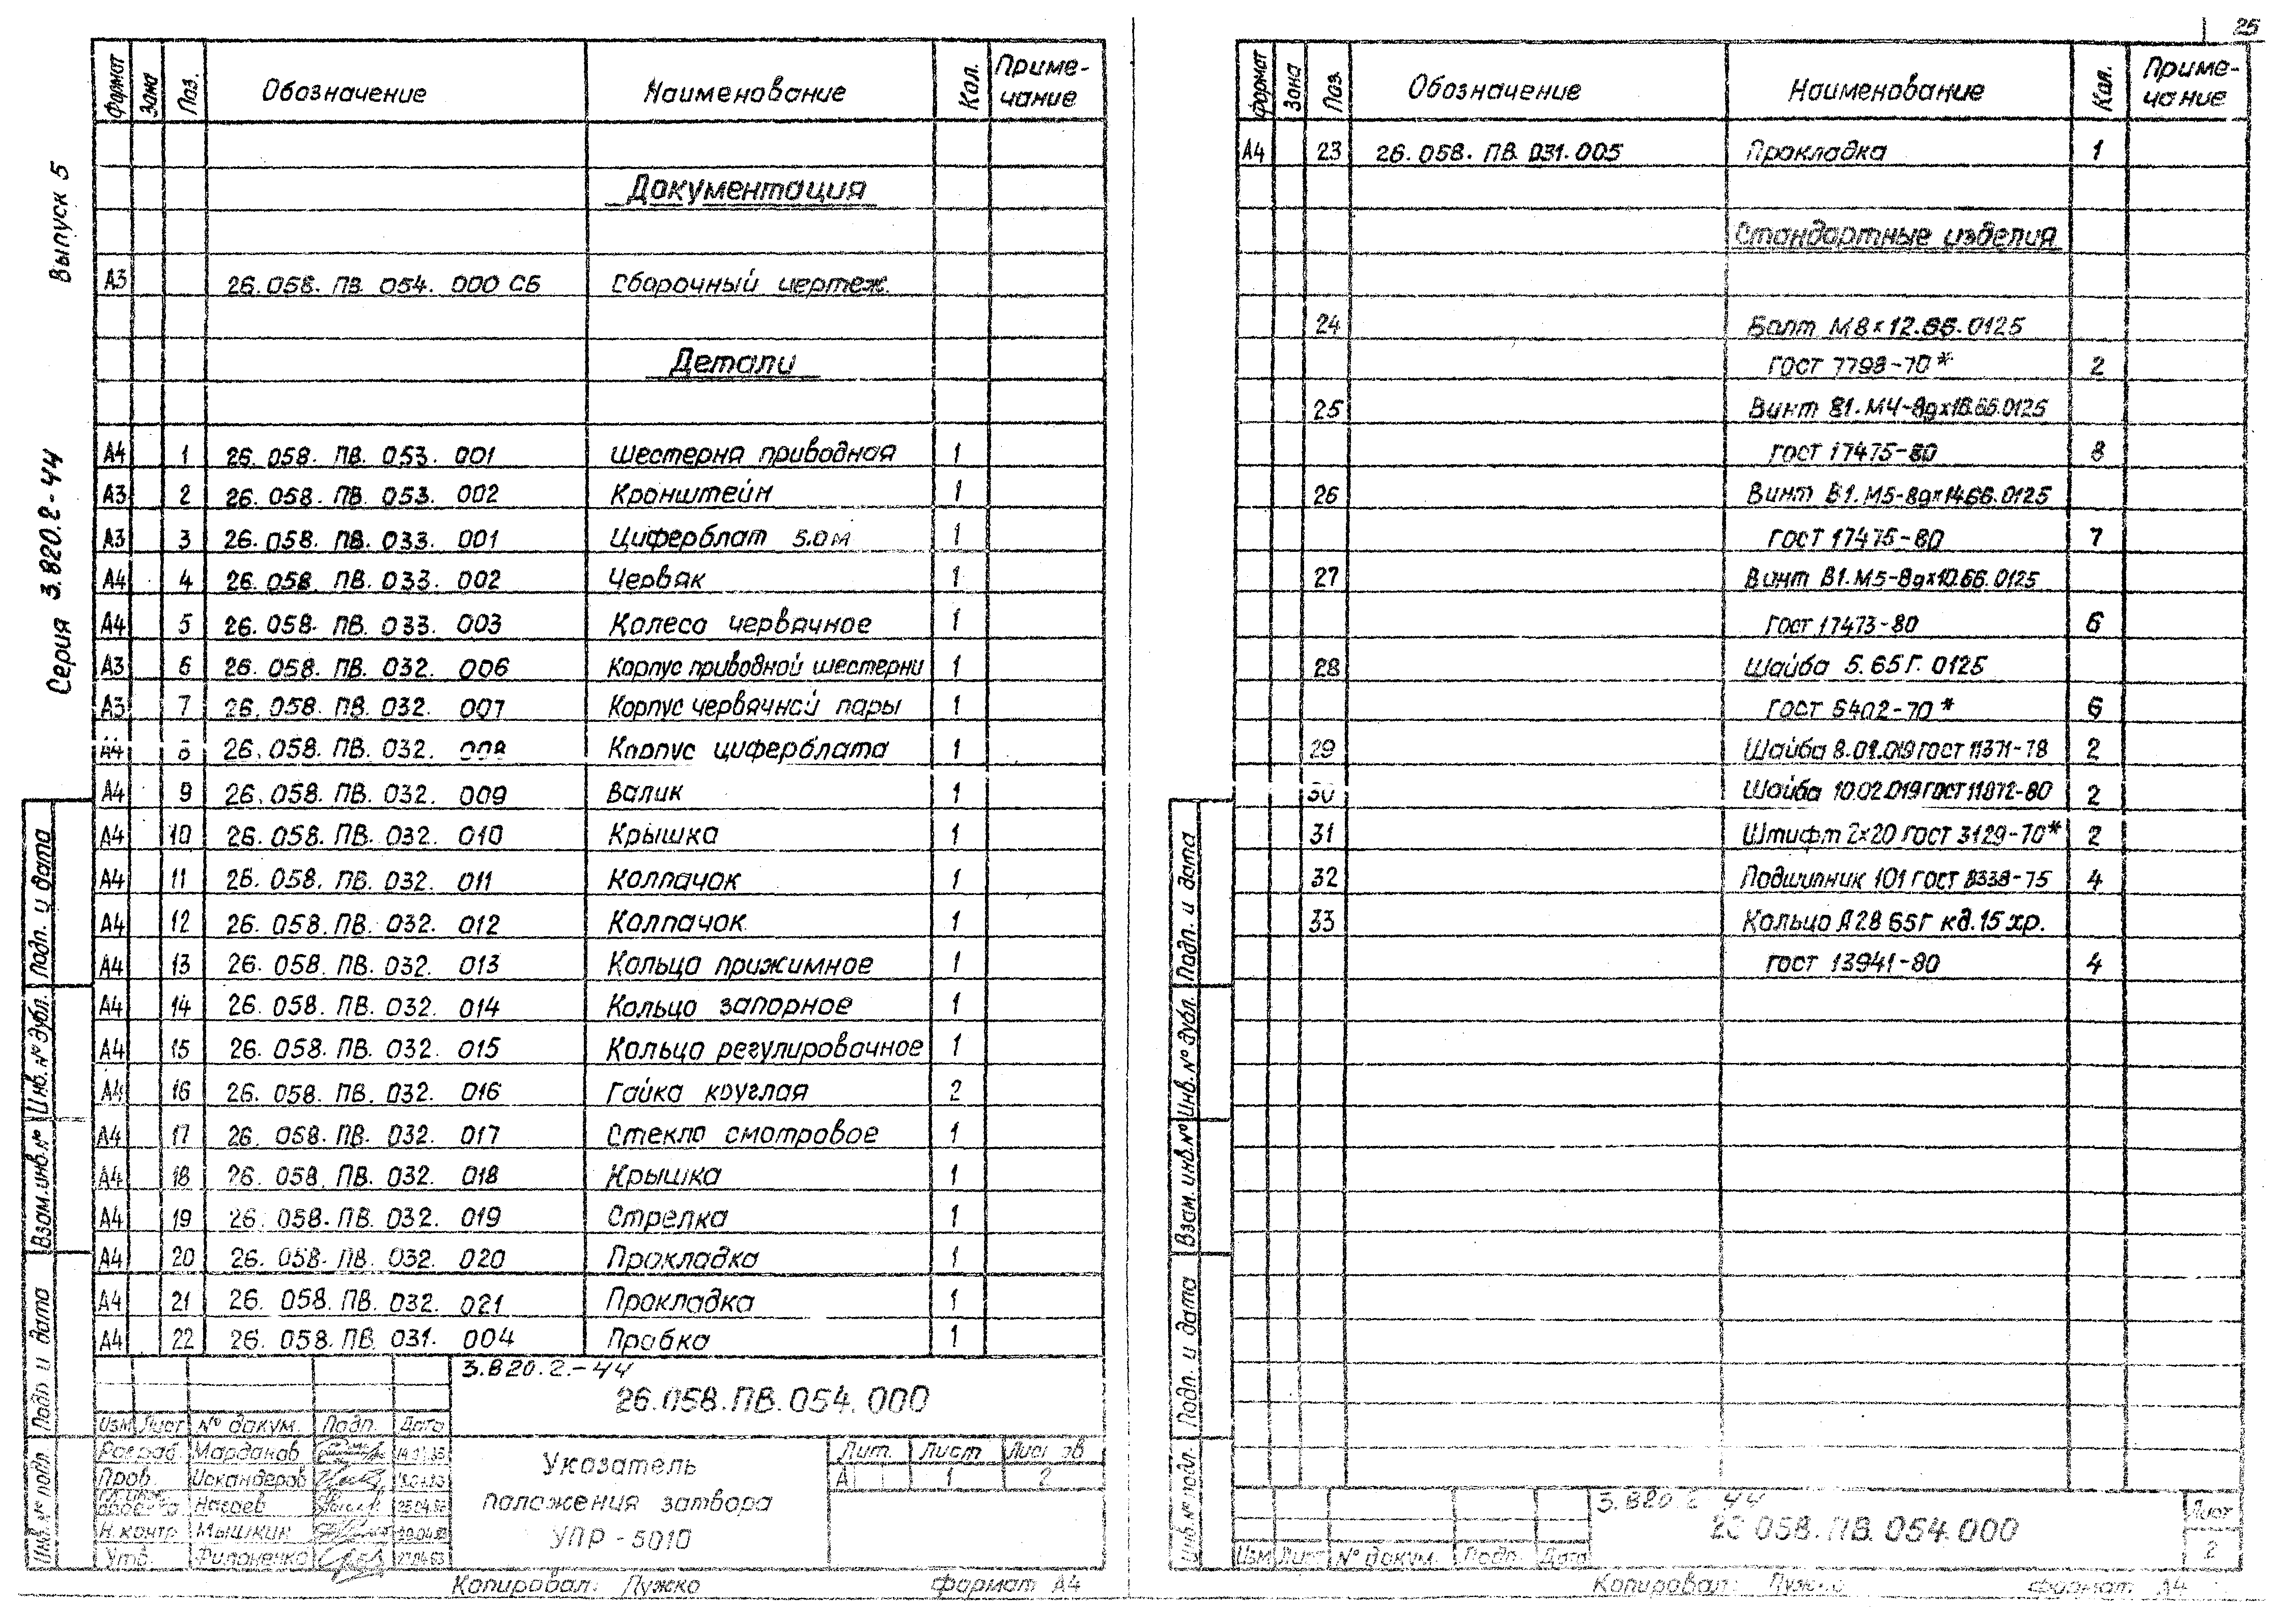 25
Серия 3.820.2-44 Выпуск 5
Формат Зона Поз. Обозначение Наименование Кол. Приме-
чание
Документация
А3 26.058. ПВ. 054. 000 СБ Сборочный чертеж
Детали
А4 1 26.058. ПВ. 053. 001 Шестерня приводная 1
А3 2 26.058. ПВ. 053. 002 Кронштейн 1
А3 3 26.058. ПВ. 033. 001 Циферблат 5.0м 1
А4 4 26.058. ПВ. 033. 002 Червяк 1
А4 5 26.058. ПВ. 033. 003 Колесо червячное 1
А3 6 26.058. ПВ. 032. 006 Корпус приводной шестерни 1
А3 7 26.058. ПВ. 032. 007 Корпус червячной пары 1
А4 8 26.058. ПВ. 032. 008 Корпус циферблата 1
А4 9 26.058. ПВ. 032. 009 Валик 1
А4 10 26.058. ПВ. 032. 010 Крышка 1
А4 11 26.058. ПВ. 032. 011 Колпачок 1
А4 12 26.058. ПВ. 032. 012 Колпачок 1
А4 13 26.058. ПВ. 032. 013 Кольцо прижимное 1
А4 14 26.058. ПВ. 032. 014 Кольцо запорное 1
А4 15 26.058. ПВ. 032. 015 Кольцо регулировочное 1
А4 16 26.058. ПВ. 032. 016 Гайка круглая 2
А4 17 26.058. ПВ. 032. 017 Стекло смотровое 1
А4 18 26.058. ПВ. 032. 018 Крышка 1
А4 19 26.058. ПВ. 032. 019 Стрелка 1
А4 20 26.058. ПВ. 032. 020 Прокладка 1
А4 21 26.058. ПВ. 032. 021 Прокладка 1
А4 22 26.058. ПВ. 031. 004 Пробка 1
3.820.2-44
26.058.ПВ.054.000
Изм Лист № докум. Подп. Дата
Разраб. Марданов
Пров. Искандеров
Нагаев
Н.контр Мышкин
Утв. Филоненко
Указатель
положения затвора
УПР-5010
Лит. Лист Листов
А 1 2
Копировал: Лужко формат А4
Инв. № подл. Подп. и дата Взам. инв. № Инв. № дубл. Подп. и дата
Формат Зона Поз. Обозначение Наименование Кол. Приме-
чание
А4 23 26.058. ПВ. 031.005 Прокладка 1
Стандартные изделия
24 Болт М8×12.66.0125
ГОСТ 7798-70* 2
25 Винт В1.М4-8g×16.66.0125
ГОСТ 17475-80 8
26 Винт В1.М5-8g×14.66.0125
ГОСТ 17475-80 7
27 Винт В1.М5-8g×10.66.0125
ГОСТ 17473-80 6
28 Шайба 5.65Г. 0125
ГОСТ 6402-70* 6
29 Шайба 8.01.019 ГОСТ 11371-78 2
30 Шайба 10.02.019 ГОСТ 11872-80 2
31 Штифт 2×20 ГОСТ 3129-70* 2
32 Подшипник 101 ГОСТ 8338-75 4
33 Кольцо А28 65Г кд.15 хр.
ГОСТ 13941-80 4
3.820.2-44
26.058.ПВ.054.000
Изм Лист № докум. Подп. Дата
Лист
2
Копировал: Лужко формат А4
Инв. № подл. Подп. и дата Взам. инв. № Инв. № дубл. Подп. и дата